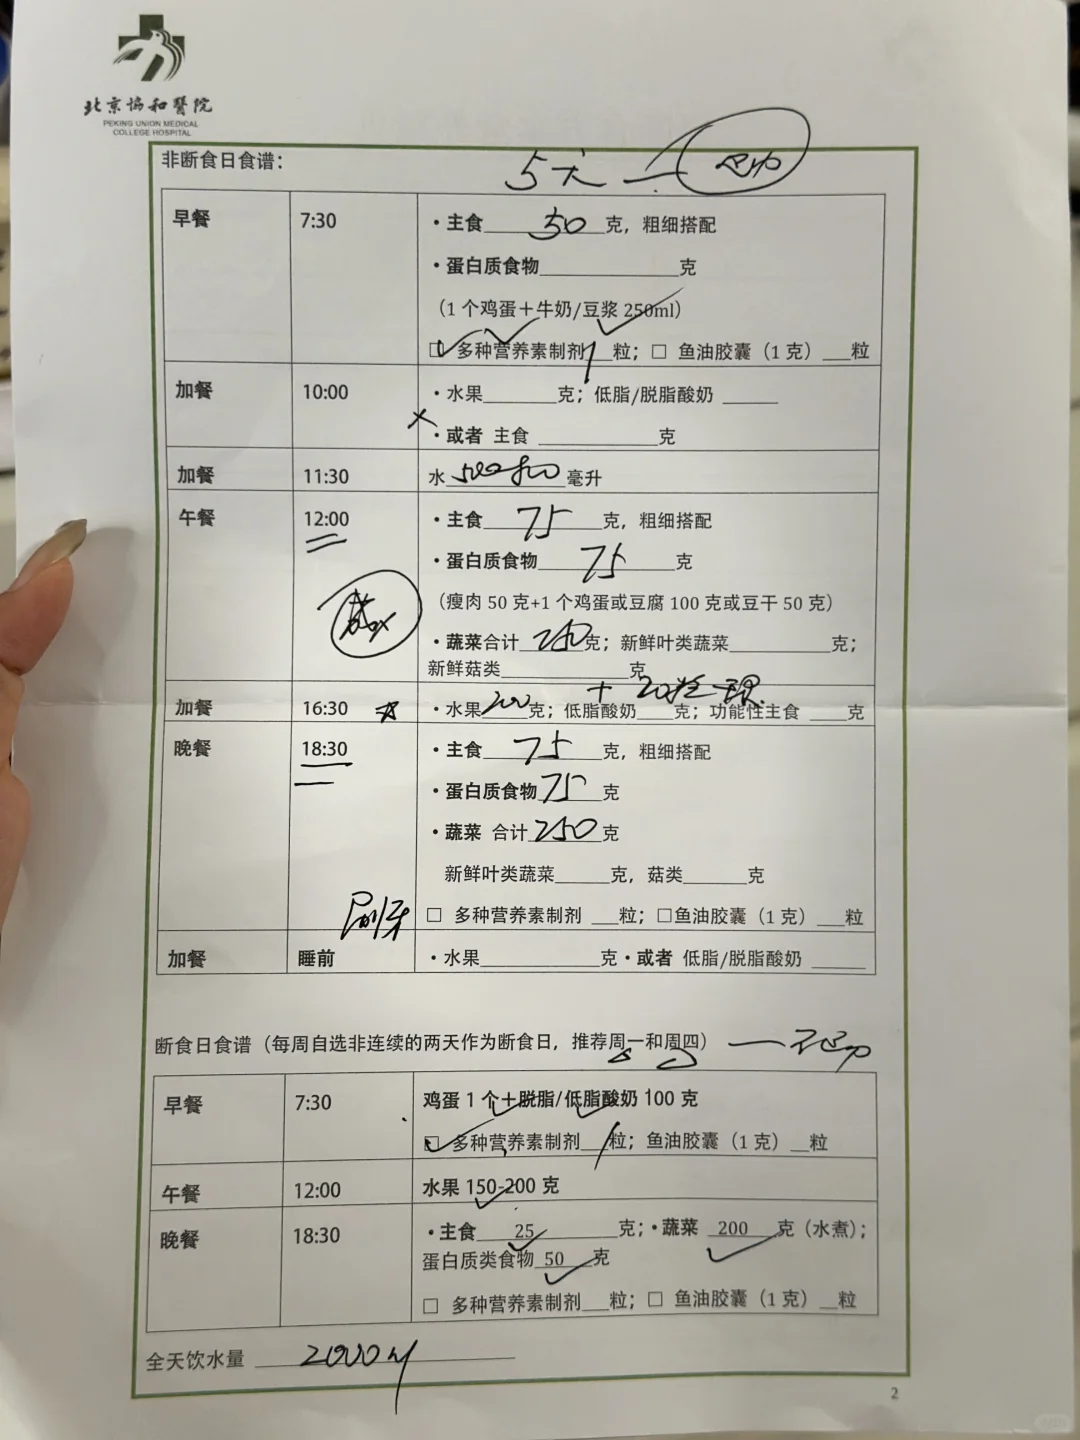 北京協和醫院
PEKING UNION MEDICAL
COLLEGE HOSPITAL
非断食日食谱：
5天一
早餐 7:30 ·主食 50 克，粗细搭配
·蛋白质食物____克
（1 个鸡蛋＋牛奶/豆浆 250ml）
□ 多种营养素制剂 1 粒；□ 鱼油胶囊（1 克）___粒
加餐 10:00 ·水果____克；低脂/脱脂酸奶 ____
·或者 主食 ____克
加餐 11:30 水 500 毫升
午餐 12:00 ·主食 75 克，粗细搭配
·蛋白质食物 75 克
（瘦肉 50 克+1 个鸡蛋或豆腐 100 克或豆干 50 克）
·蔬菜合计 250 克；新鲜叶类蔬菜____克；
新鲜菇类____克
加餐 16:30 ·水果 200 克；低脂酸奶____克；功能性主食 ____克
晚餐 18:30 ·主食 75 克，粗细搭配
·蛋白质食物 75 克
·蔬菜 合计 250 克
新鲜叶类蔬菜____克，菇类____克
刷牙
□ 多种营养素制剂 ___粒；□鱼油胶囊（1 克）___粒
加餐 睡前 ·水果____克·或者 低脂/脱脂酸奶 ____
断食日食谱（每周自选非连续的两天作为断食日，推荐周一和周四）
早餐 7:30 鸡蛋 1 个＋脱脂/低脂酸奶 100 克
□ 多种营养素制剂 1 粒；鱼油胶囊（1 克）__粒
午餐 12:00 水果 150-200 克
晚餐 18:30 ·主食 25 克；·蔬菜 200 克（水煮）；
蛋白质类食物 50 克
□ 多种营养素制剂___粒；□ 鱼油胶囊（1 克）__粒
全天饮水量 2000
2